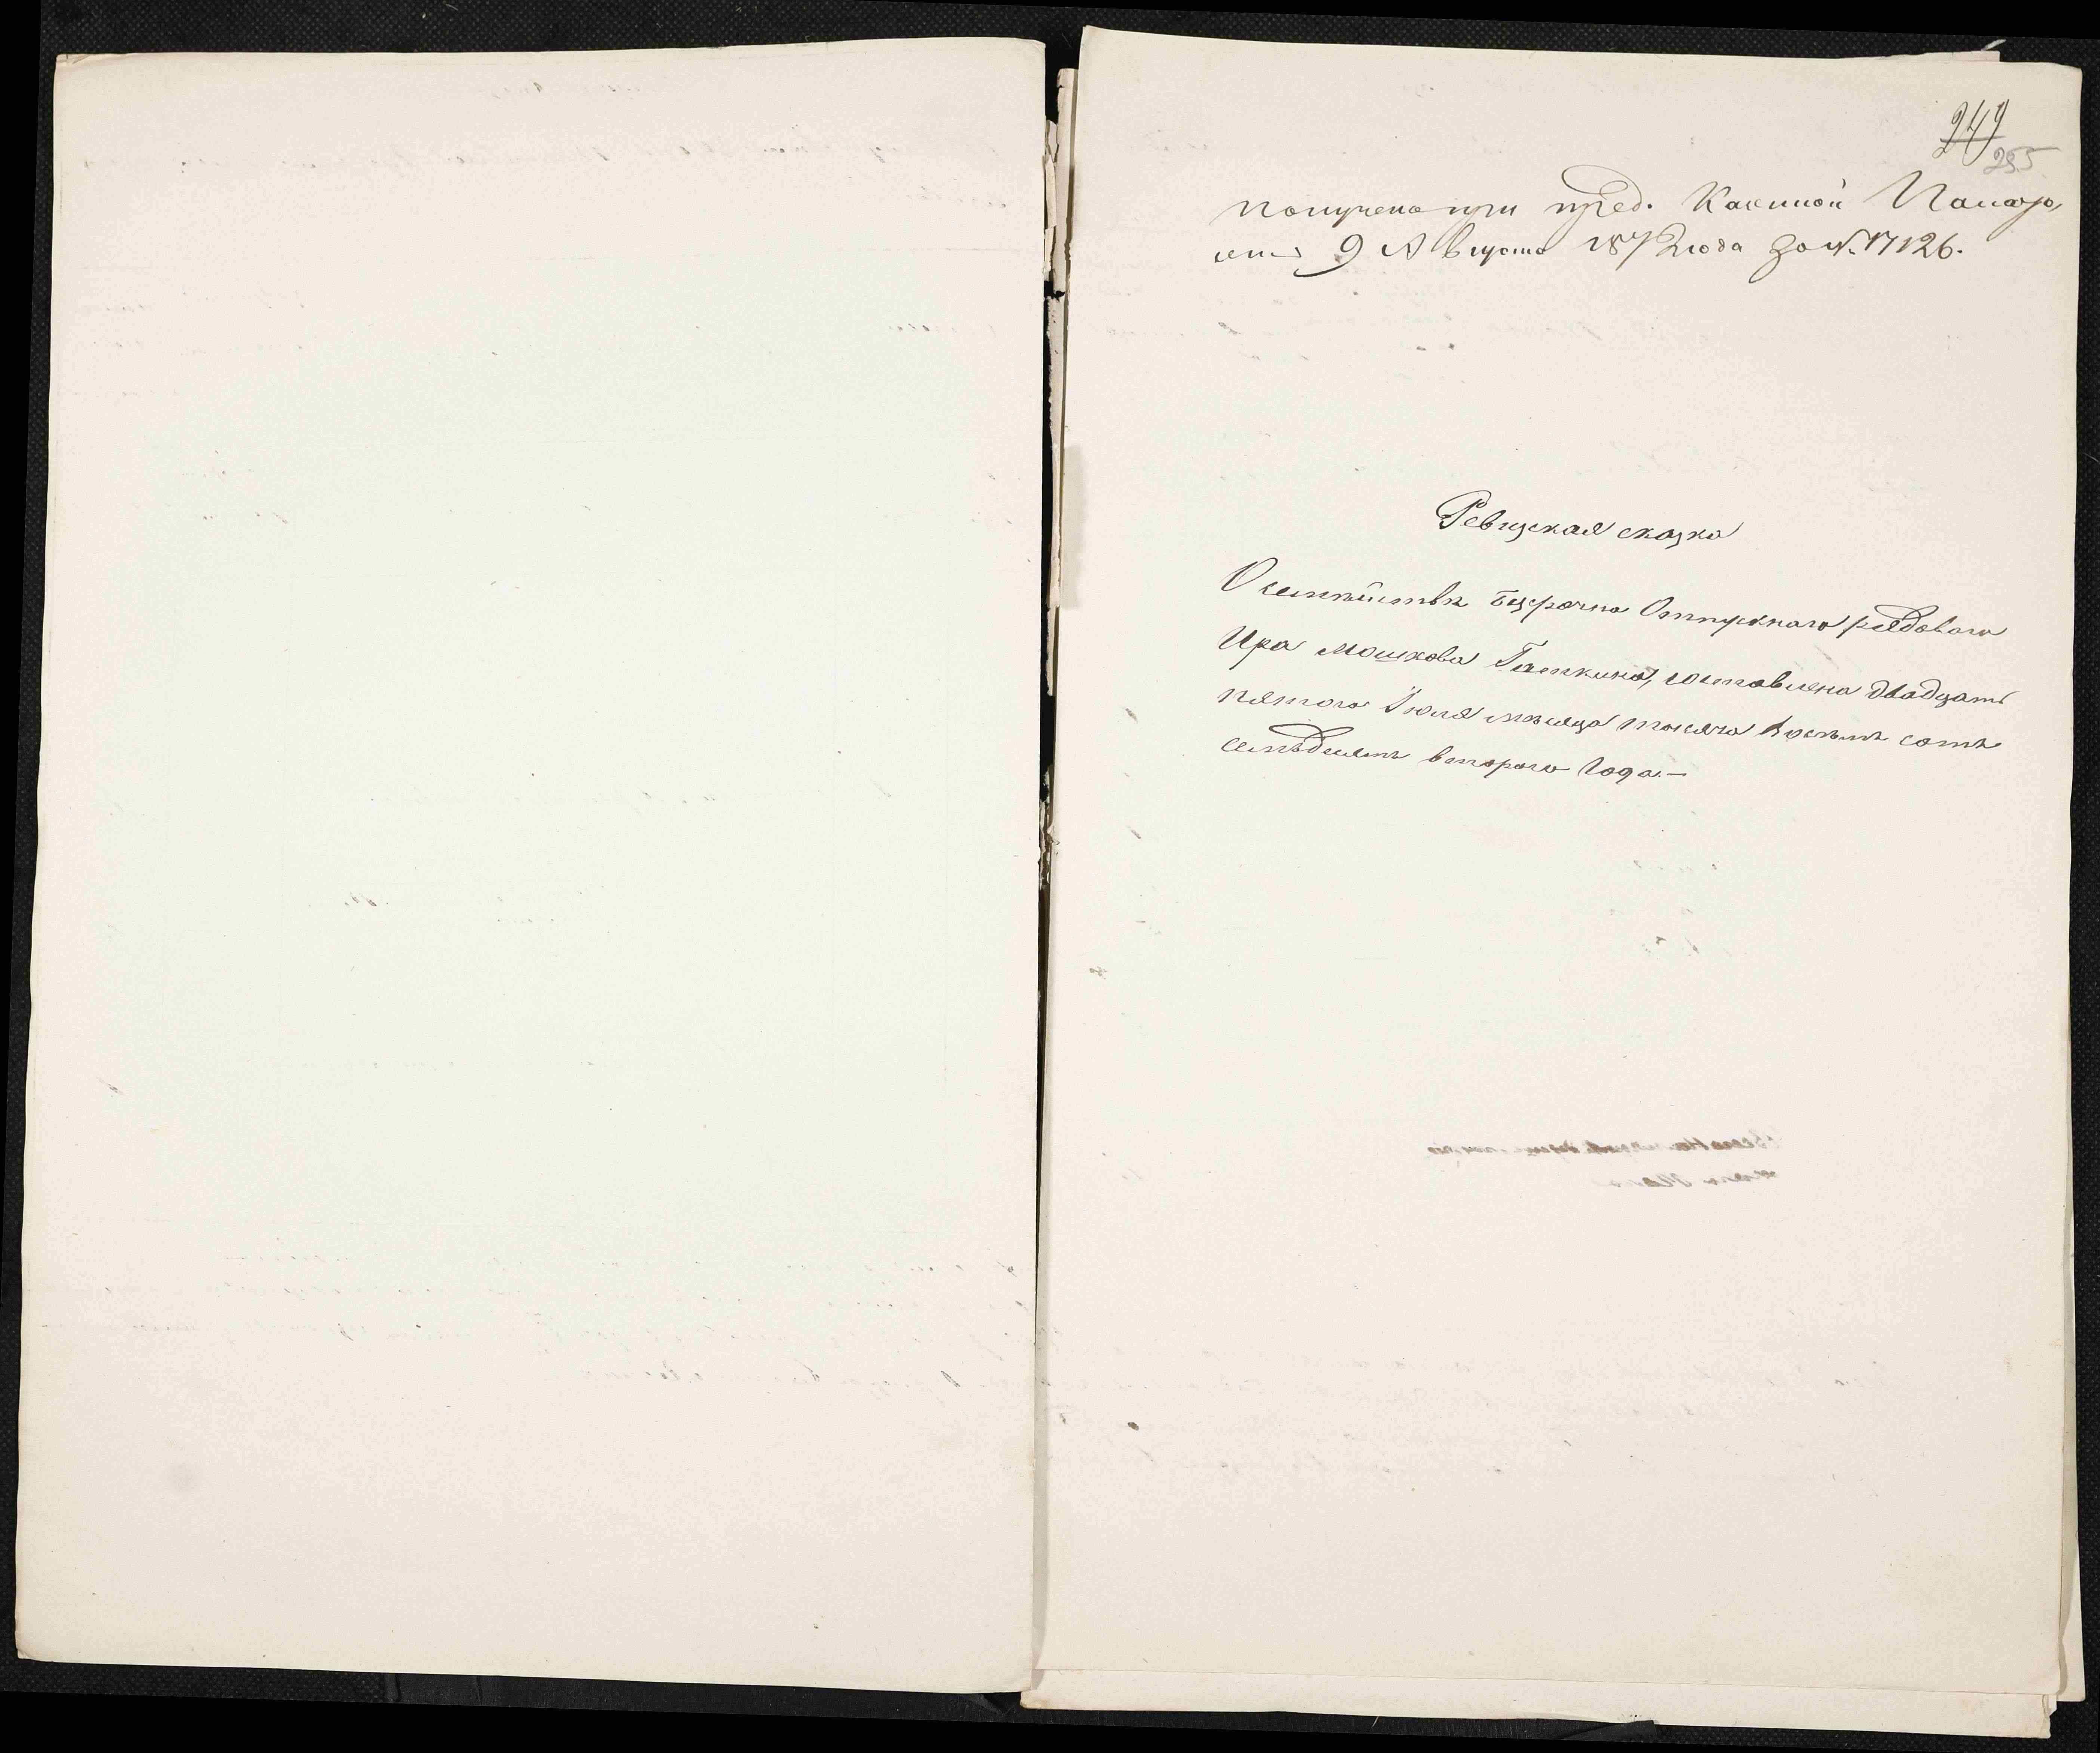 249
255
Получено при пред. Казенной Палаты,
отъ 9 Августа 1872 года за №. 17126.
Ревизская сказка
О семѣйствѣ Безрочно Отпускнаго рядоваго
Ицка Мошкова Гаткина, составлена двадцать
пятого Іюля мѣсяца тысяча восѣмъ сотъ
семьдесятъ второго года.—